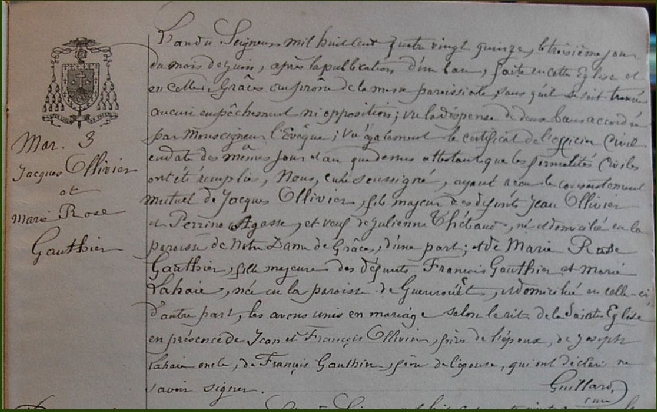 Mar. 3
Jacques Ollivier
et
Marie Rose
Gauthier
L'an du Seigneur mil huit cent quatre vingt quinze, le troisième jour
du mois de Juin, après la publication d'un ban, faite en cette Eglise et
en celle de Grâces au prône de la messe paroissiale sans qu'il se soit trouvé
aucun empêchement ni opposition; vu la dispense de deux bans accordée
par Monseigneur l'Evêque; vu également le certificat de l'officier Civil
en date des mêmes jour et an que dessus attestant que les formalités Civiles
ont été remplies, Nous, curé soussigné, ayant reçu le consentement
mutuel de Jacques Ollivier, fils majeur des défunts Jean Ollivier
et Perrine Agasse, et veuf de Julienne Thébaud, né et domicilié en la
paroisse de Notre Dame de Grâces, d'une part; et de Marie Rose
Gauthier, fille majeure des défunts François Gauthier et Marie
Lahaie, née en la paroisse de Guenrouët, et domiciliée en celle-ci,
d'autre part, les avons unis en mariage selon le rit de la Sainte Eglise
en présence de Jean et François Ollivier, frère de l'époux, de Joseph
Lahaie oncle, de François Gauthier, frère de l'épouse, qui ont déclaré ne
savoir signer.
Guillard
curé